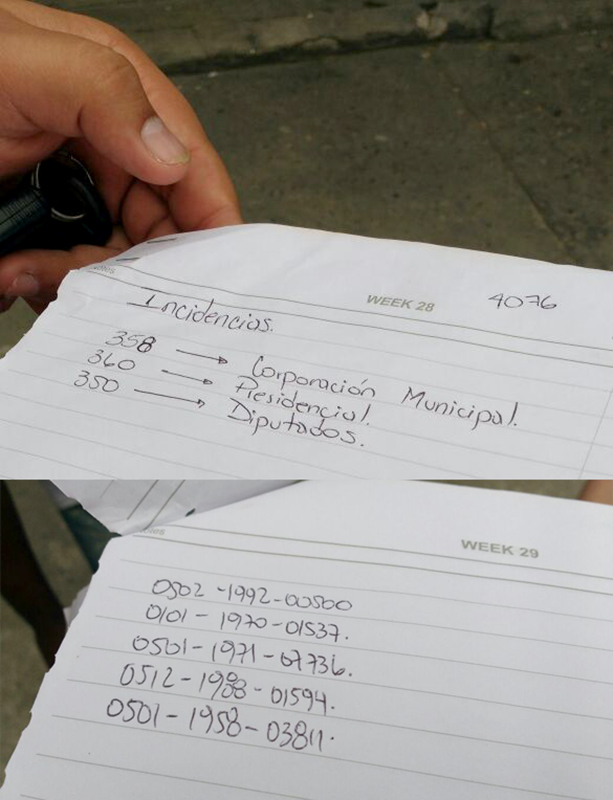 WEEK 28
4076
Incidencias.
358 → Corporación Municipal.
360 → Presidencial.
350 → Diputados.
WEEK 29
0502-1992-00500
0101-1970-01537.
0501-1971-07736.
0512-1988-01594.
0501-1958-03811.